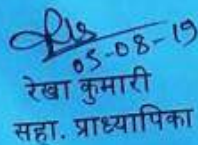 05-08-19
रेखा कुमारी
सहा. प्राध्यापिका